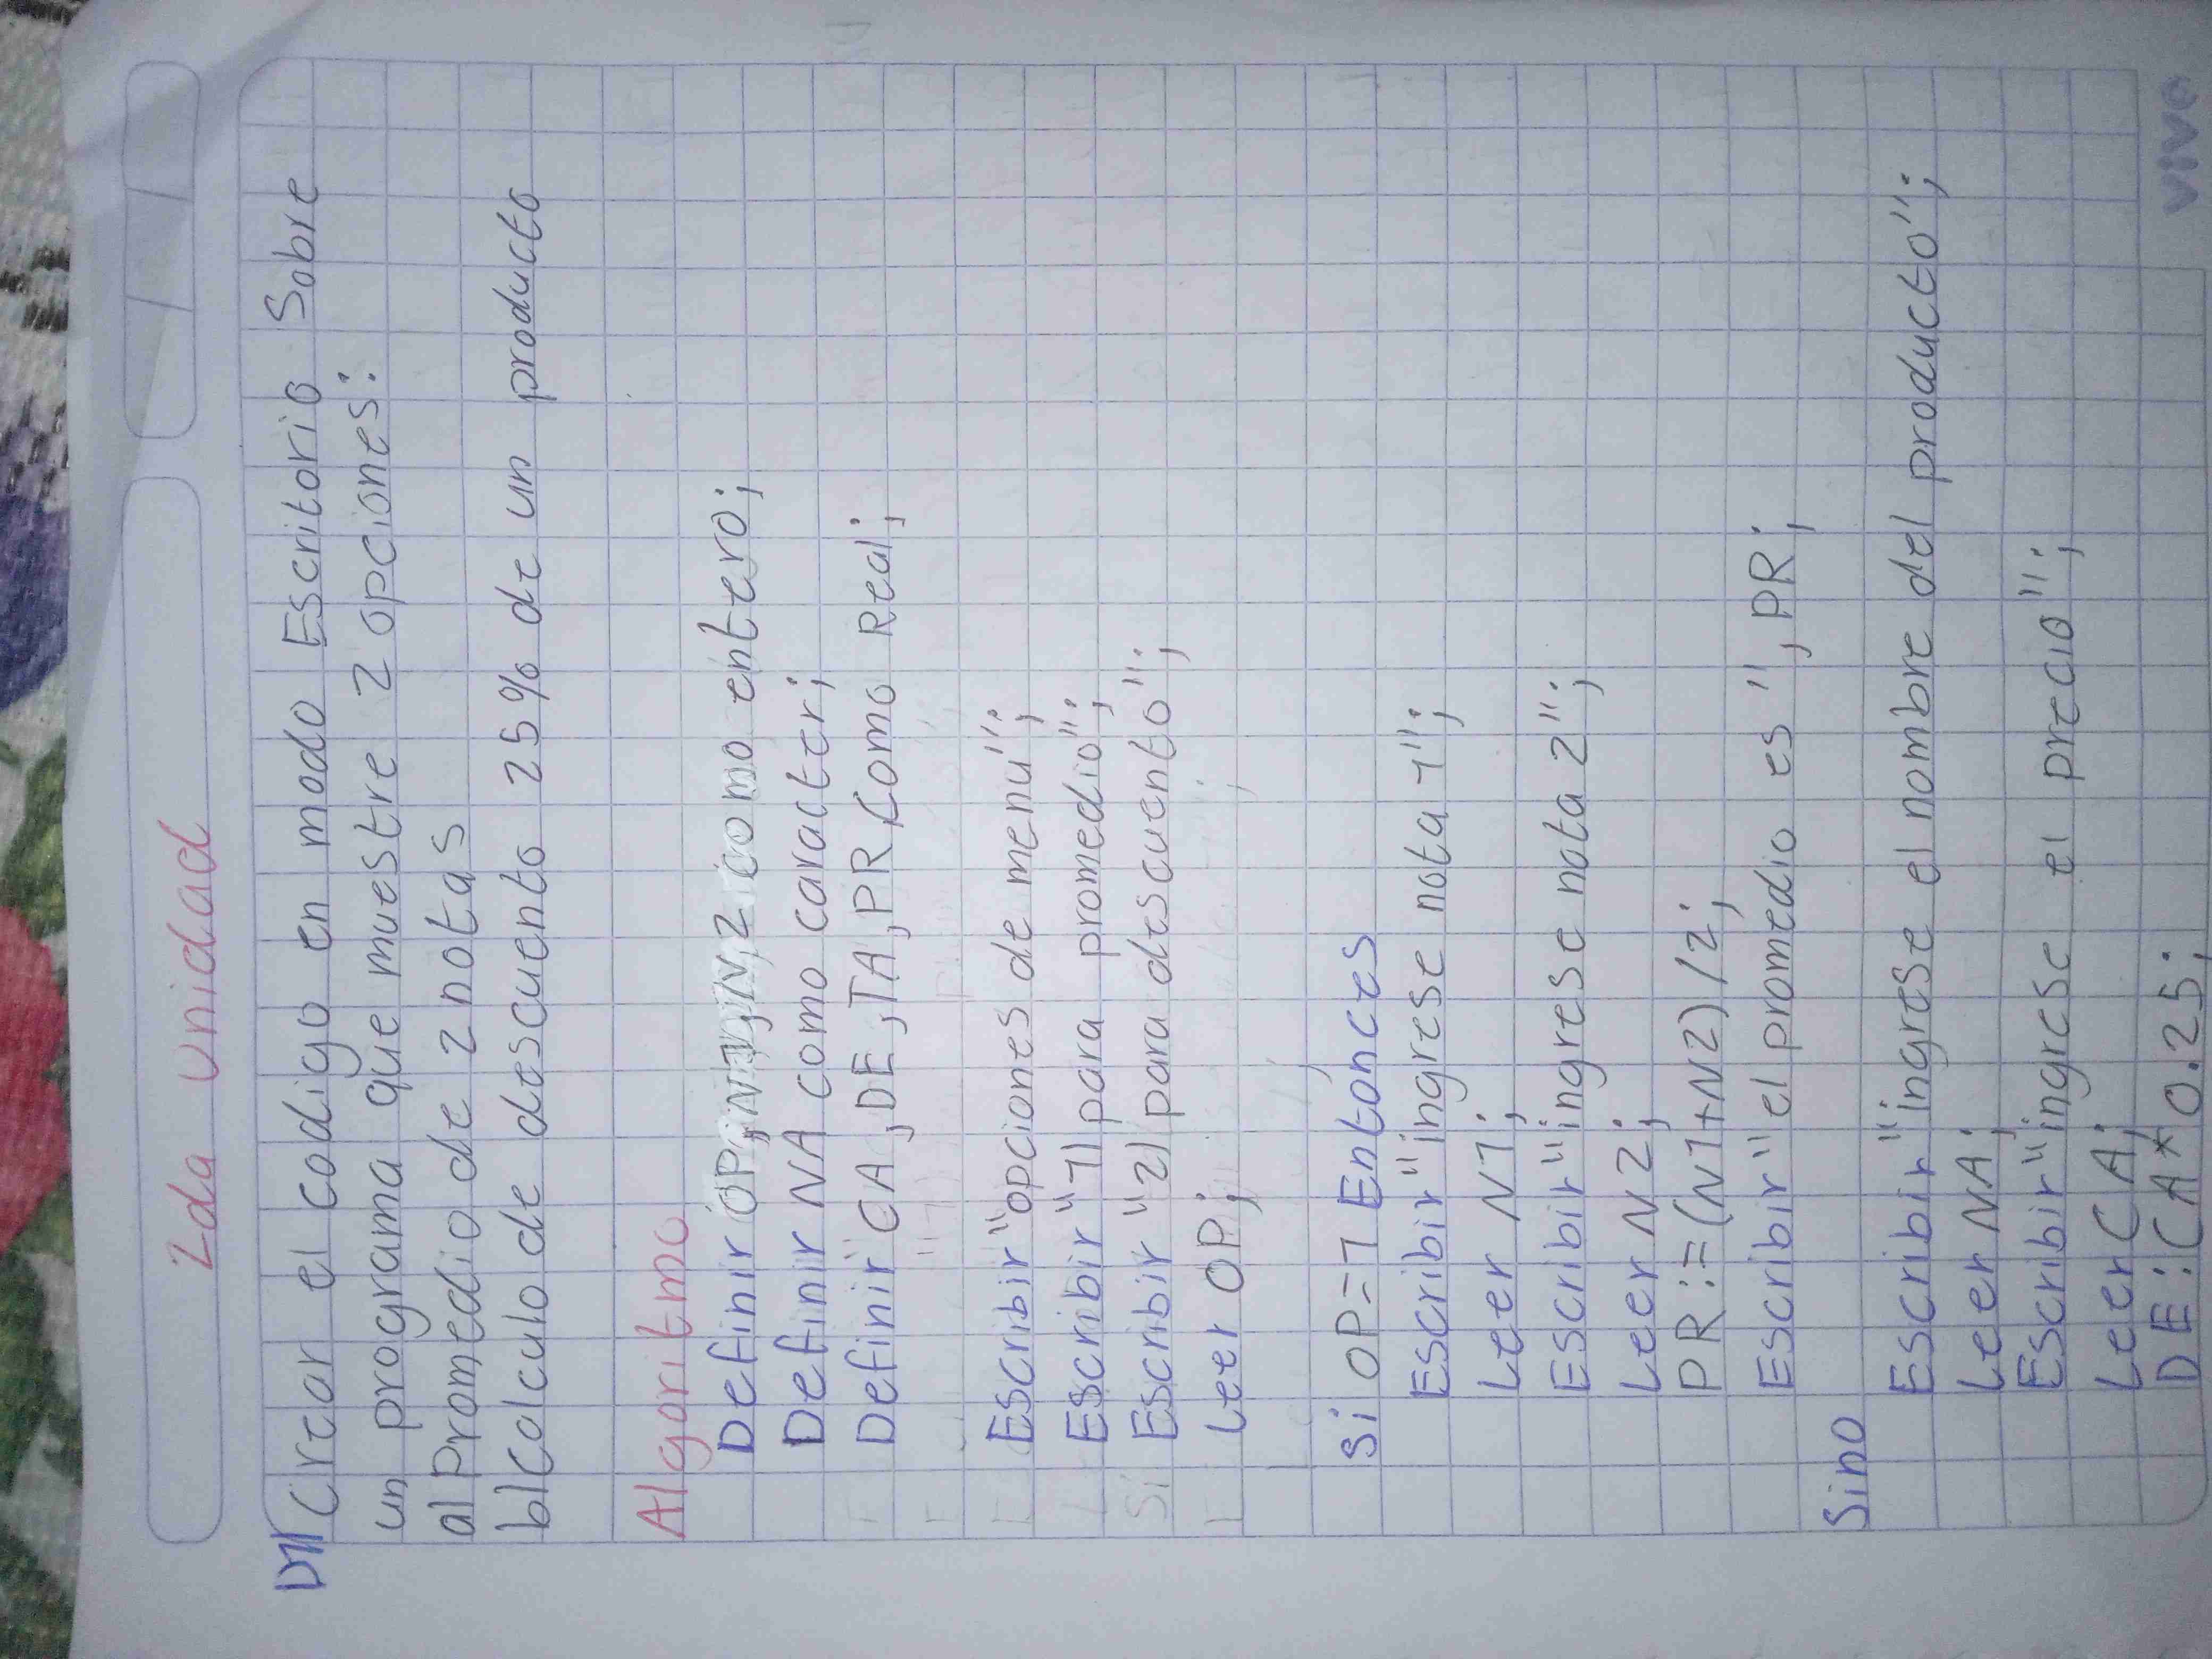 2da unidad
Crear el codigo en modo Escritorio Sobre
un programa que muestre 2 opciones:
a) Promedio de 2 notas
b) Calculo de descuento 25% de un producto
Algoritmo
Definir OP, N1, N2 como entero;
Definir NA como caracter;
Definir CA, DE, TA, PR Como Real;
Escribir "opciones de menu";
Escribir "1) para promedio";
Escribir "2) para descuento";
Leer OP;
Si OP=1 Entonces
Escribir "ingrese nota 1";
Leer N1;
Escribir "ingrese nota 2";
Leer N2;
PR:=(N1+N2)/2;
Escribir "el promedio es", PR;
Sino
Escribir "ingrese el nombre del producto";
Leer NA;
Escribir "ingrese el precio";
Leer CA;
DE:CA*0.25;
vivo